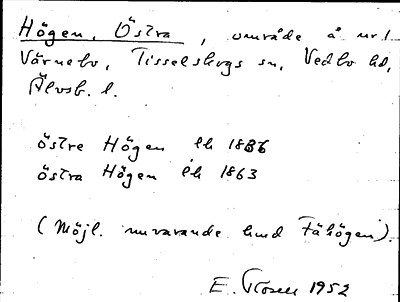 Högen, Östra, område å nr 1
Värnebo, Tisselskogs sn, Vedbo hd,
Älvsb. l.
östre Högen lh 1836
östra Högen lh 1863
(Möjl. nuvarande hmd Fähögen).
E. Rosell 1952